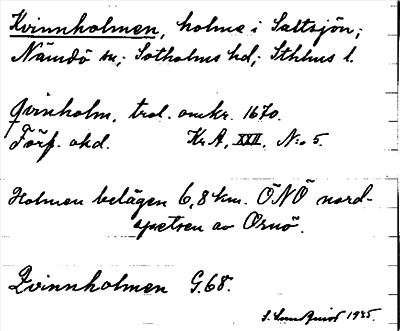 Kvinnholmen, holme i Saltsjön;
Nämdö sn; Sotholms hd; Sthlms l.
Qvinholm, trol. omkr. 1670.
Förf. okd. Kr A, XXII, No 5.
Holmen belägen 6,8 km. ÖNÖ nord-
spetsen av Ornö.
Qvinnholmen G. 68.
S. Lundquist 1935.